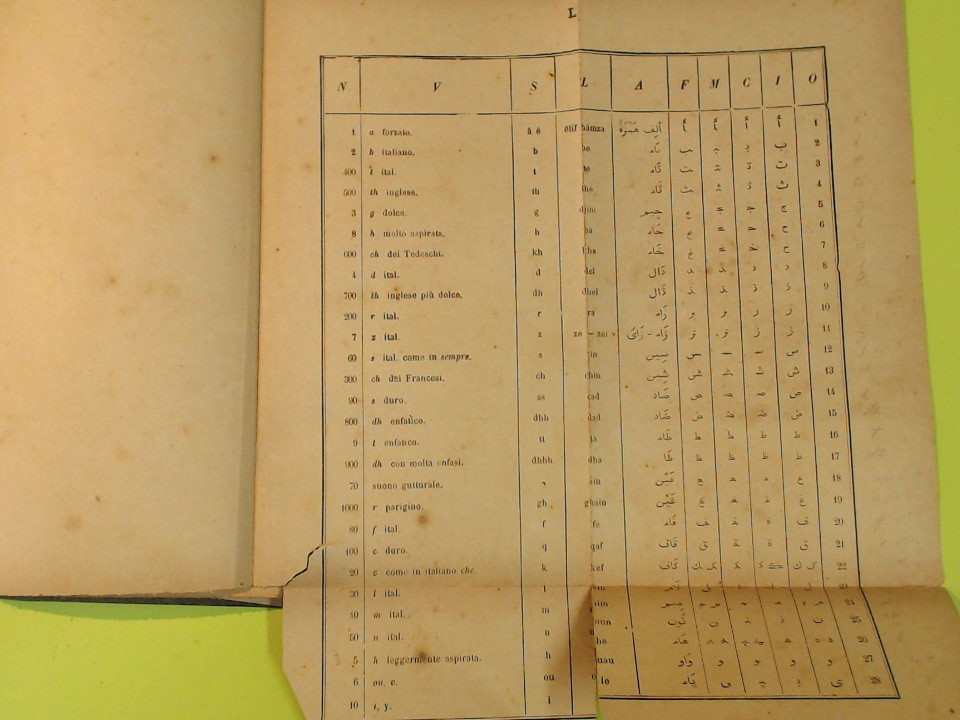 L
N V S L A F M C I O
1 a forzato. ā ē elif hamza ألِف همزة أ أ أ أ 1
2 b italiano. b be بَاء ب 2
400 t ital. t te تَاء ت 3
500 th inglese. th the ثَاء ث 4
3 g dolce. g djim جِيم ج 5
8 h molto aspirata. h ha حَاء ح 6
600 ch dei Tedeschi. kh kha خَاء 7
4 d ital. d del دَال د د د د 8
700 th inglese più dolce. dh dhel ذَال ذ ذ ذ ذ 9
200 r ital. r ra رَاء ر ر ر ر 10
7 z ital. z ze – zei زَاء - زَاىْ ز ز ز ز 11
60 s ital. come in sempre. s sin سِين س 12
300 ch dei Francesi. ch chin شِين ش 13
90 s duro. ss çad صَاد ص 14
800 dh enfatico. dhh dad ضَاد ض 15
9 t enfatico. tt ta طَاء ط ط ط ط 16
900 dh con molta enfasi. dhhh dha ظَا ظ ظ ظ ظ 17
70 suono gutturale. ain ع 18
1000 r parigino. gh ghain غَيْن غ 19
80 f ital. f fe فَاء ف 20
100 c duro. q qaf قَاف ق 21
20 c come in italiano che k kef كَاف ك 22
30 l ital. l
40 m ital. m mim مِيم 24
50 n ital. n noun نُون ن 25
5 h leggermente aspirata. h he هَاء 26
6 ou, o. ou ouau وَاو و و و و 27
10 i, y. i ie يَاء ى 28